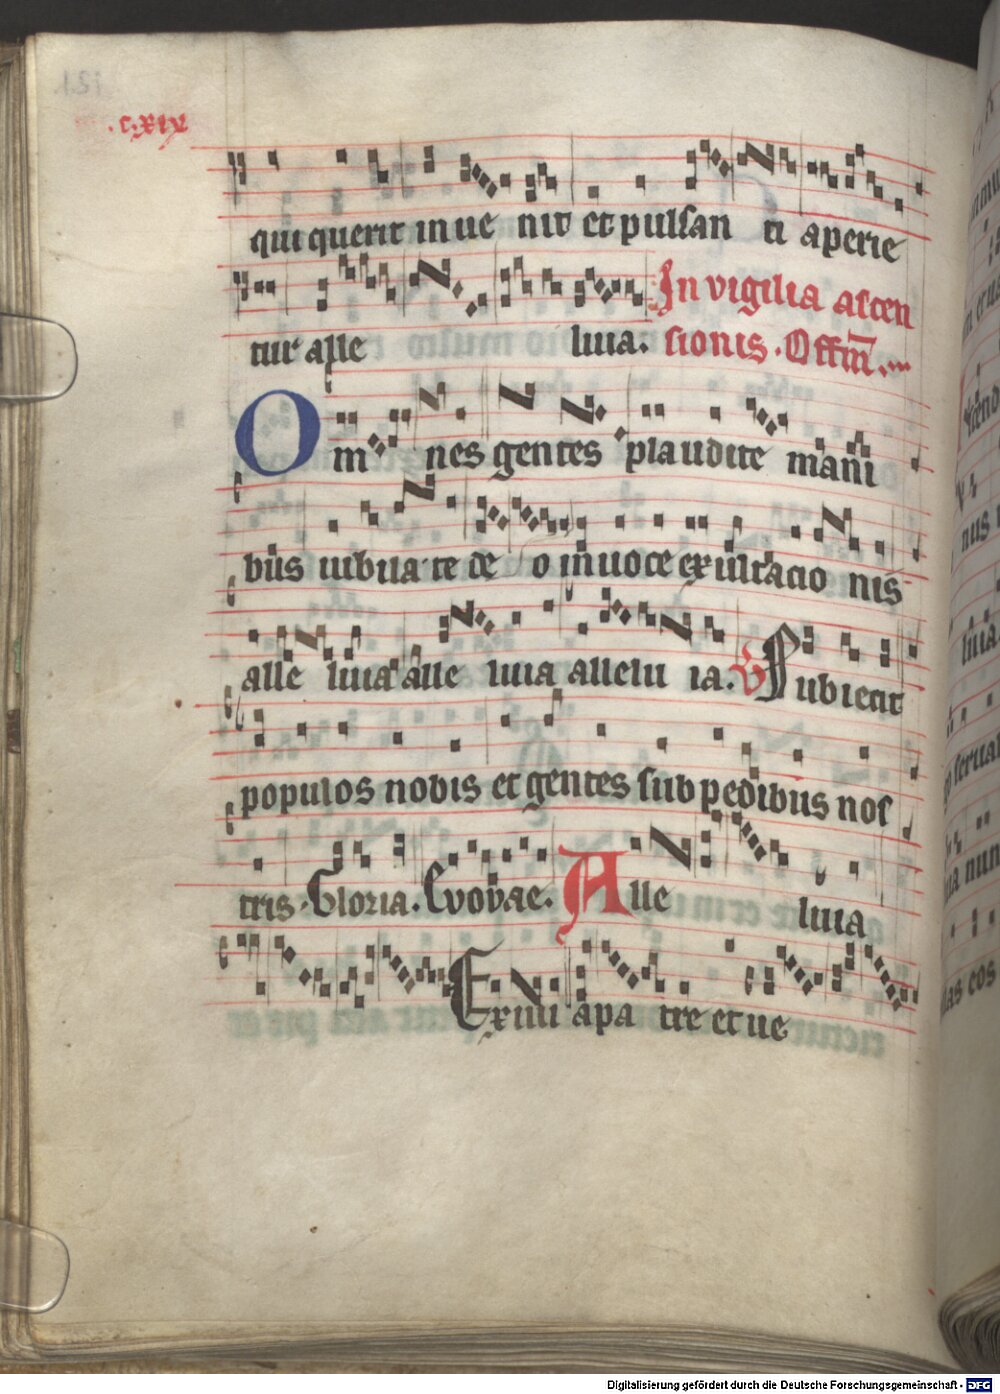 .c.xix
qui querit in ue nit et pulsan ti aperie
tur alle luia. In vigilia ascen
sionis. Offm̅
Om nes gentes plaudite mani
bus iubila te de o in uoce exultacio nis
alle luia alle luia allelu ia. V Subiecit
populos nobis et gentes sub pedibus nos
tris. Gloria. Evovae. Alle luia
Exiui a pa tre et ue
Digitalisierung gefördert durch die Deutsche Forschungsgemeinschaft - DFG